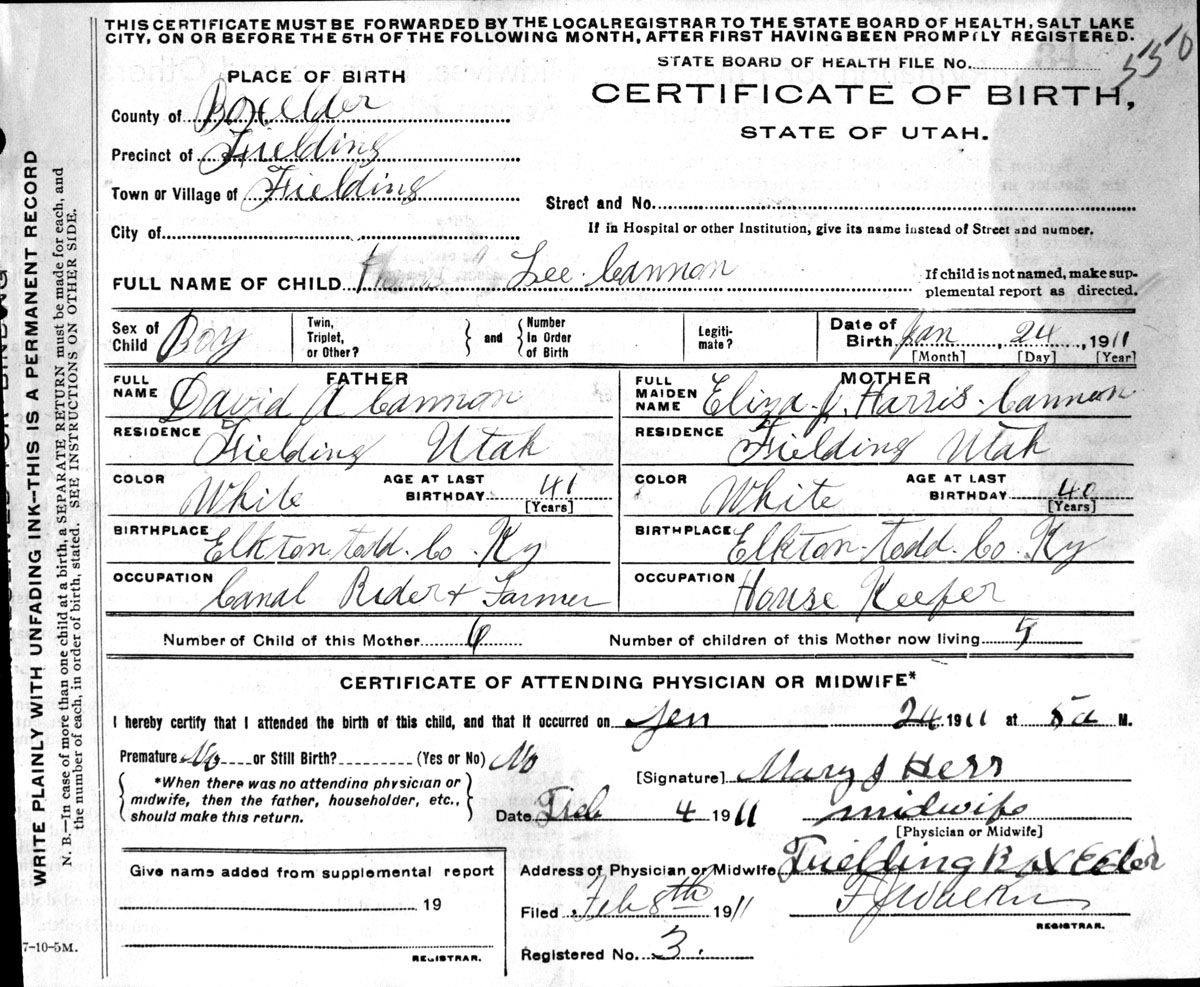 THIS CERTIFICATE MUST BE FORWARDED BY THE LOCAL REGISTRAR TO THE STATE BOARD OF HEALTH, SALT LAKE
CITY, ON OR BEFORE THE 5TH OF THE FOLLOWING MONTH, AFTER FIRST HAVING BEEN PROMPTLY REGISTERED.
STATE BOARD OF HEALTH FILE No. 550
PLACE OF BIRTH
CERTIFICATE OF BIRTH,
STATE OF UTAH.
County of Boxelder
Precinct of Fielding
Town or Village of Fielding
Street and No.
City of
If in Hospital or other Institution, give its name instead of Street and number.
FULL NAME OF CHILD Lee Cannon
If child is not named, make sup-
plemental report as directed.
Sex of Child Boy
Twin, Triplet, or Other?
and
Number In Order of Birth
Legiti-mate?
Date of Birth Jan 24, 1911
[Month] [Day] [Year]
FATHER
FULL NAME David A Cannon
RESIDENCE Fielding Utah
COLOR White
AGE AT LAST BIRTHDAY 41
[Years]
BIRTHPLACE Elkton Todd. Co. Ky
OCCUPATION Canal Rider + Farmer
MOTHER
FULL MAIDEN NAME Eliza J. Harris Cannon
RESIDENCE Fielding Utah
COLOR White
AGE AT LAST BIRTHDAY 40
[Years]
BIRTHPLACE Elkton Todd. Co. Ky
OCCUPATION House Keeper
Number of Child of this Mother 6
Number of children of this Mother now living 5
CERTIFICATE OF ATTENDING PHYSICIAN OR MIDWIFE*
I hereby certify that I attended the birth of this child, and that it occurred on Jen 24 1911 at 5 a M.
Premature No or Still Birth? (Yes or No) No
*When there was no attending physician or
midwife, then the father, householder, etc.,
should make this return.
[Signature] Mary J Herr
Date Feb 4 1911 midwife
[Physician or Midwife]
Give name added from supplemental report
19
REGISTRAR.
Address of Physician or Midwife Fuielding Box Elder
Filed Feb 8th 1911
F J Walker
REGISTRAR.
Registered No. 3.
7-10-5M.
WRITE PLAINLY WITH UNFADING INK--THIS IS A PERMANENT RECORD
N. B.—In case of more than one child at a birth, a SEPARATE RETURN must be made for each, and
the number of each, in order of birth, stated. SEE INSTRUCTIONS ON OTHER SIDE.